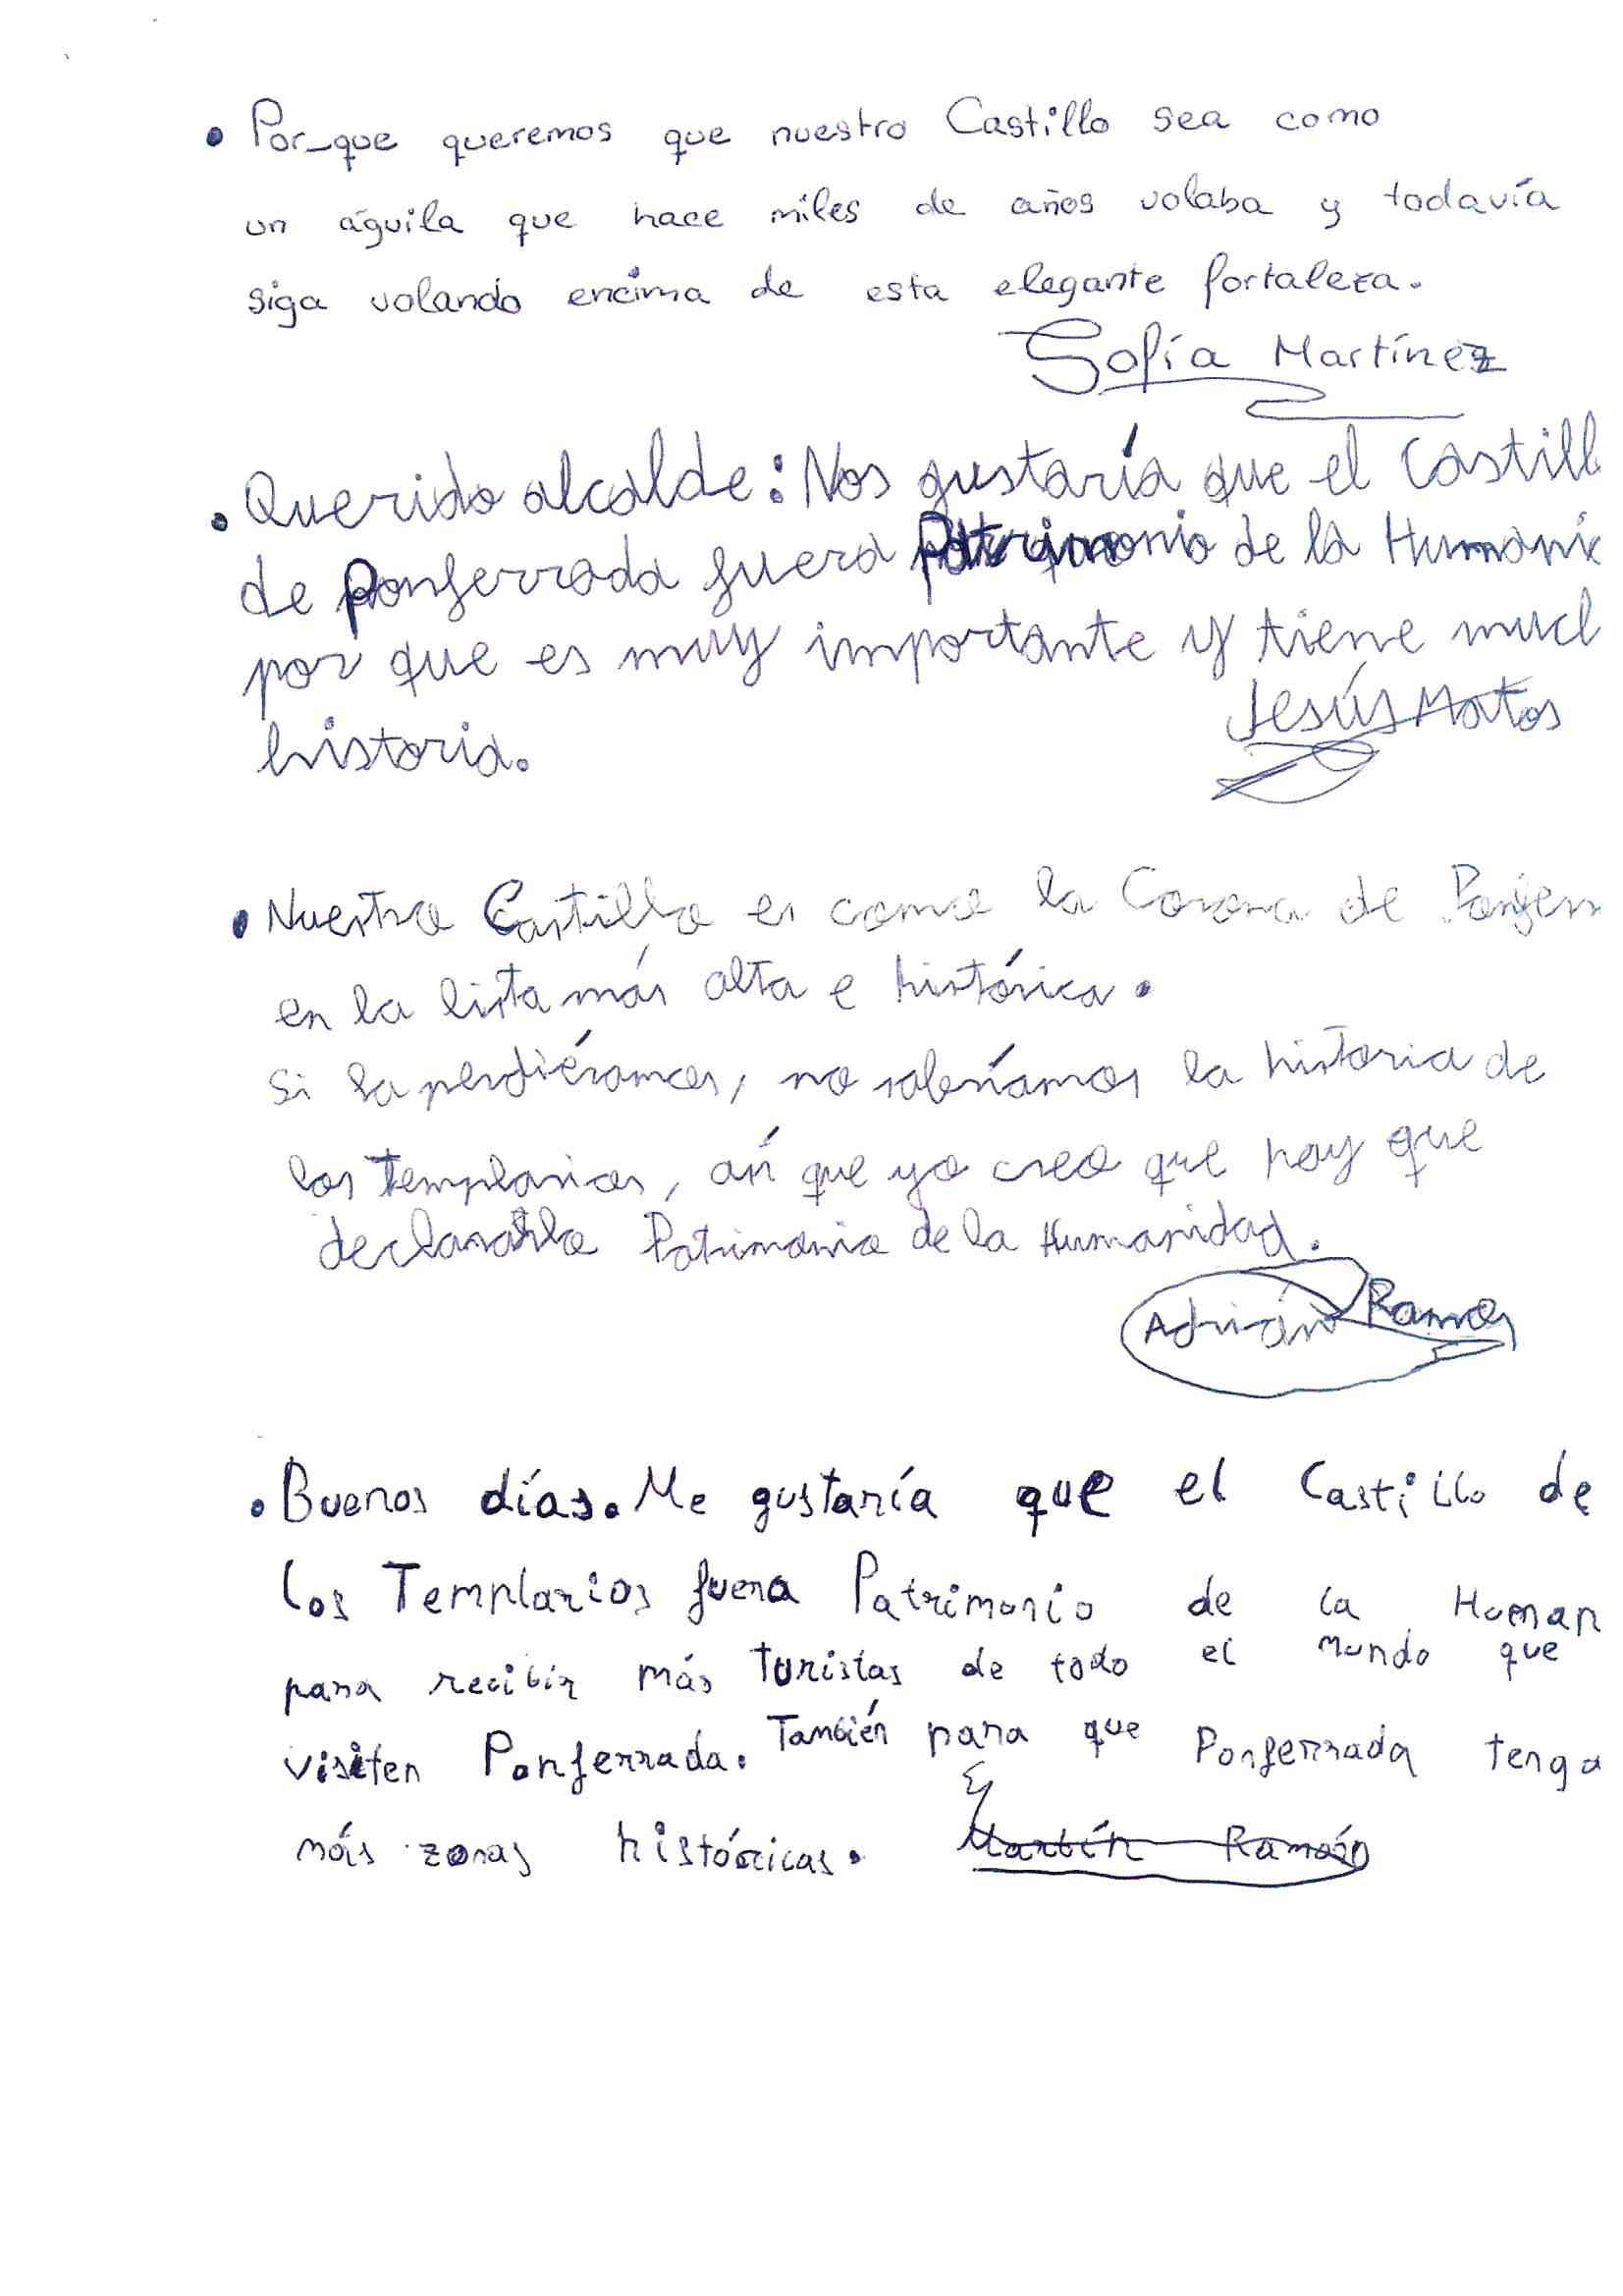 • Por-que queremos que nuestro Castillo sea como
un águila que hace miles de años volaba y todavía
siga volando encima de esta elegante fortaleza.
Sofía Martínez
• Querido alcalde: Nos gustaría que el Castill
de Ponferrada fuera Patrimonio de la Humani
por que es muy importante y tiene much
historia.
Jesús Matos
• Nuestro Castillo es como la Corona de Ponferr
en la lista más alta e histórica.
Si la perdiéramos, no sabríamos la historia de
los Templarios, así que yo creo que hay que
declararlo Patrimonio de la Humanidad.
Adrián Ramos
• Buenos días. Me gustaría que el Castillo de
los Templarios fuera Patrimonio de la Human
para recibir más turistas de todo el mundo que
visiten Ponferrada. También para que Ponferrada tenga
más zonas históricas.
Martín Ramón